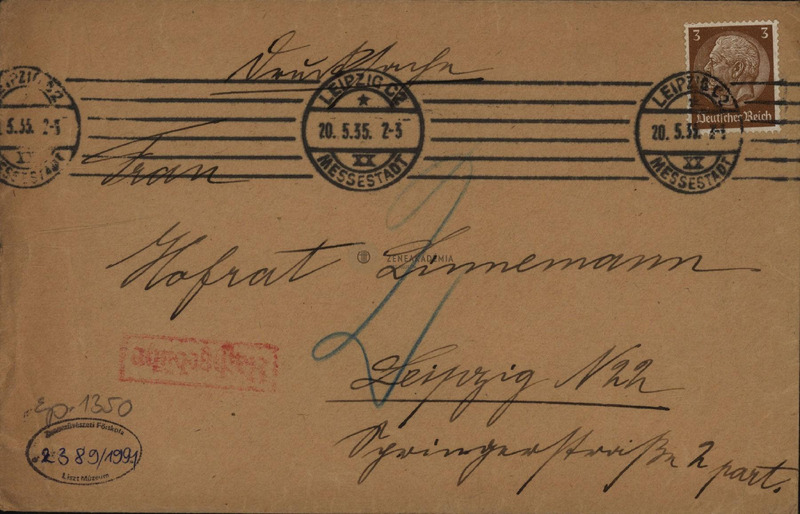 Drucksache
3 3
Deutsches Reich
LEIPZIG C2
20. 5.35. 2-3
XX
MESSESTADT
LEIPZIG C2
20. 5.35. 2-3
XX
MESSESTADT
LEIPZIG C2
5.35. 2-3
XX
MESSESTADT
Frau
Hofrat Linnemann
ZENEAKADÉMIA
2
Leipzig N22
Springerstraße 2 part.
Ep. 1350
Zeneművészeti Főiskola
2389/1991
Liszt Múzeum